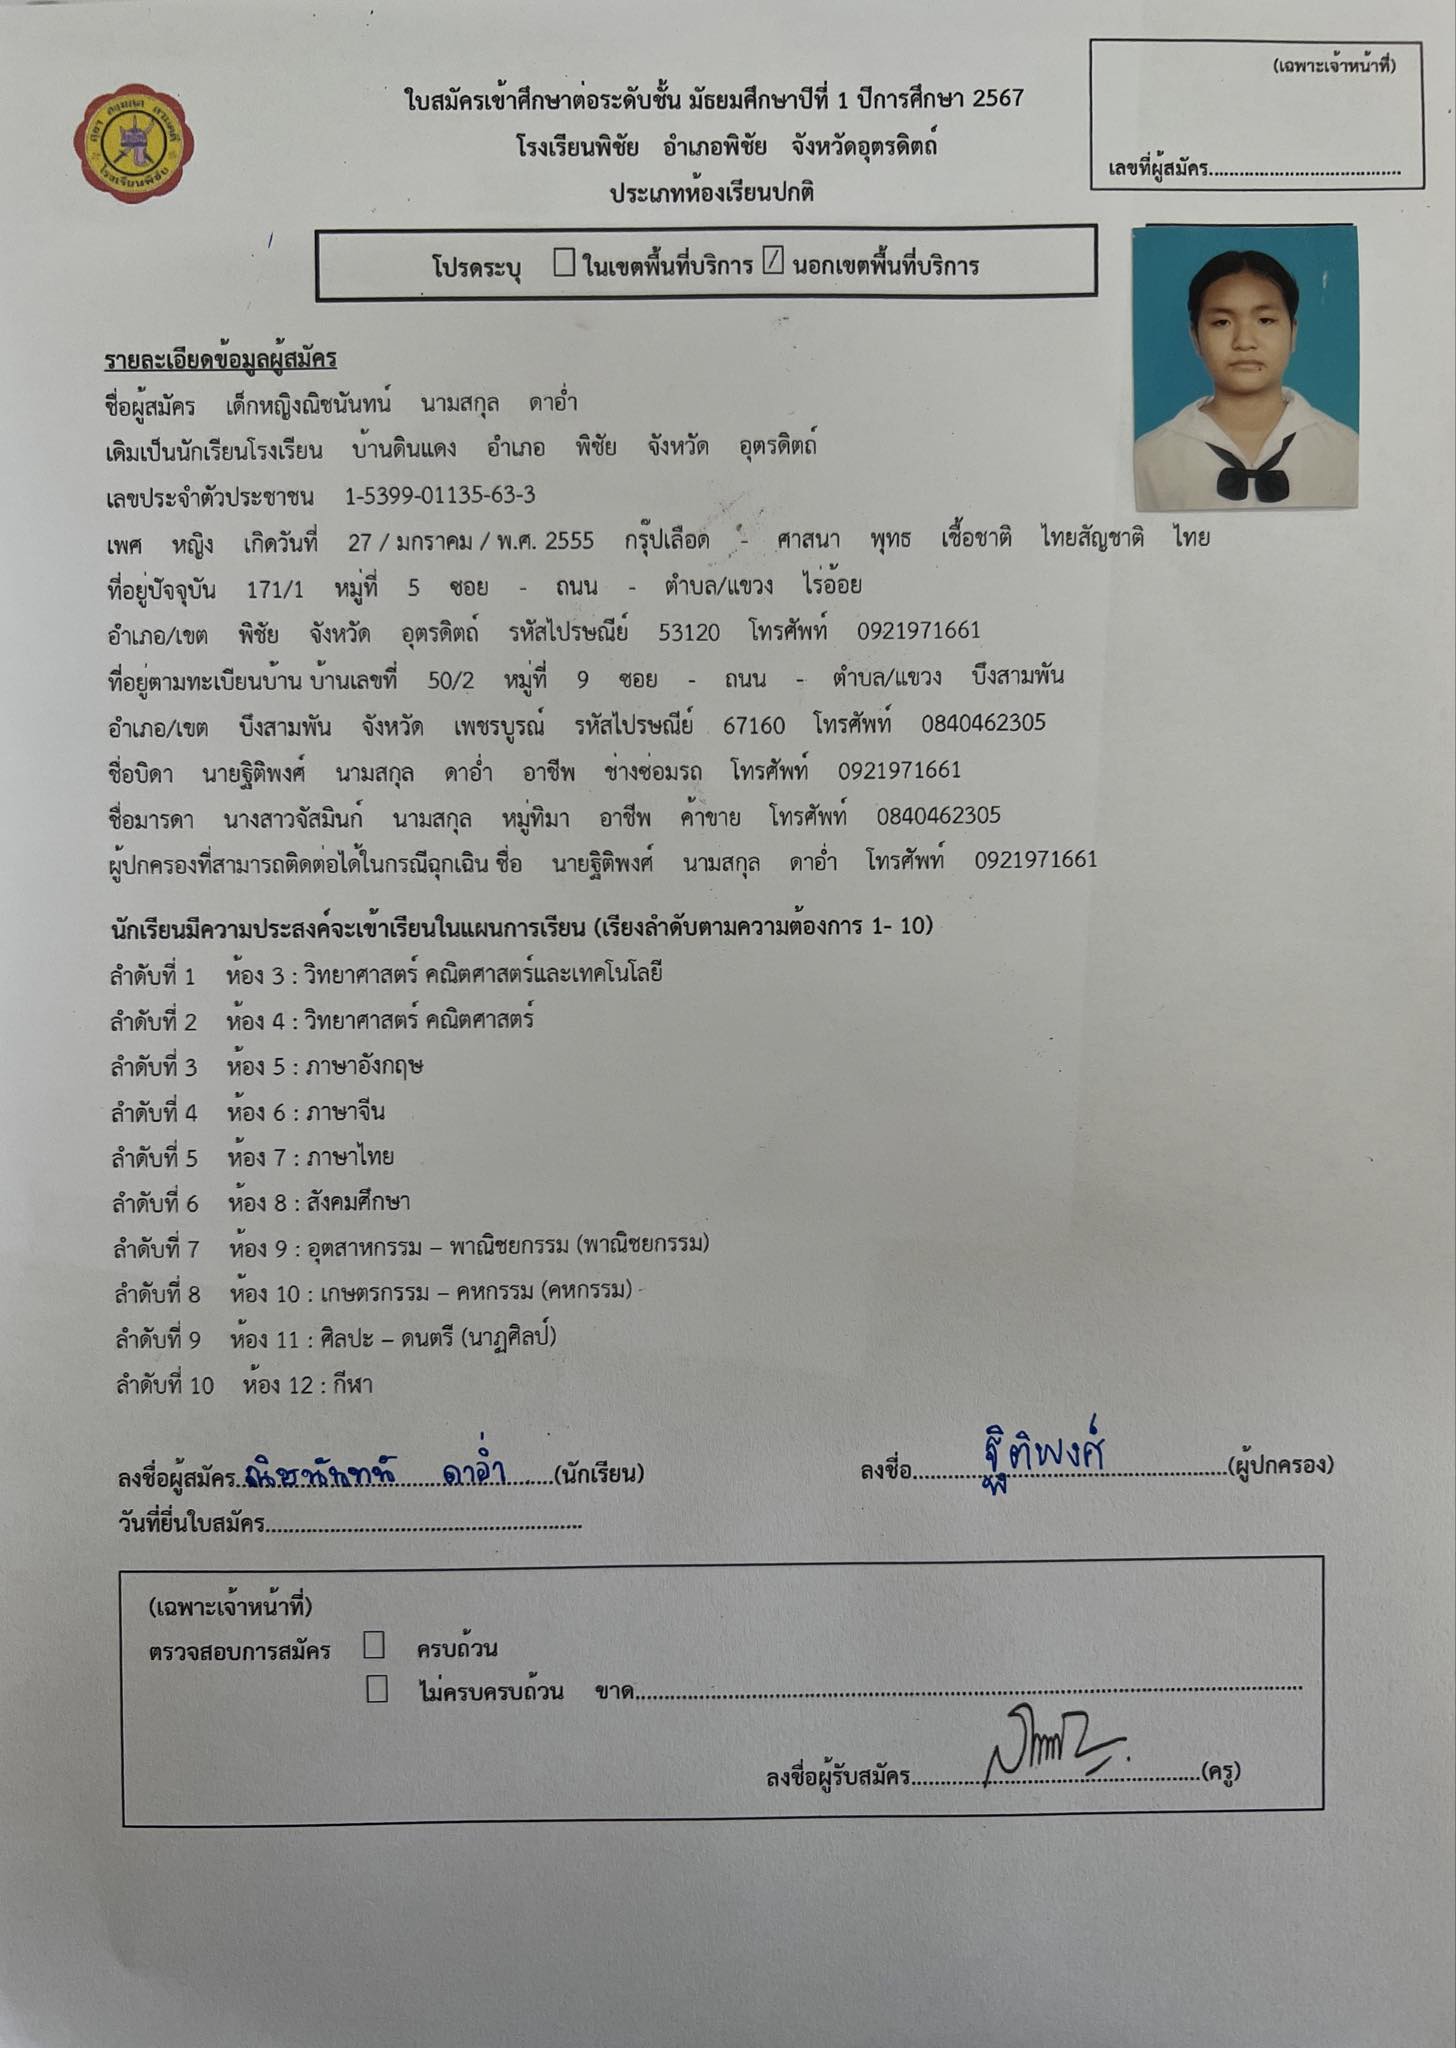 (เฉพาะเจ้าหน้าที่)
เลขที่ผู้สมัคร
ใบสมัครเข้าศึกษาต่อระดับชั้น มัธยมศึกษาปีที่ 1 ปีการศึกษา 2567
โรงเรียนพิชัย อำเภอพิชัย จังหวัดอุตรดิตถ์
ประเภทห้องเรียนปกติ
โรงเรียนพิชัย
โปรดระบุ ☐ ในเขตพื้นที่บริการ ☑ นอกเขตพื้นที่บริการ
รายละเอียดข้อมูลผู้สมัคร
ชื่อผู้สมัคร เด็กหญิงณิชนันทน์ นามสกุล ดาอ่ำ
เดิมเป็นนักเรียนโรงเรียน บ้านดินแดง อำเภอ พิชัย จังหวัด อุตรดิตถ์
เลขประจำตัวประชาชน 1-5399-01135-63-3
เพศ หญิง เกิดวันที่ 27 / มกราคม / พ.ศ. 2555 กรุ๊ปเลือด - ศาสนา พุทธ เชื้อชาติ ไทยสัญชาติ ไทย
ที่อยู่ปัจจุบัน 171/1 หมู่ที่ 5 ซอย - ถนน - ตำบล/แขวง ไร่อ้อย
อำเภอ/เขต พิชัย จังหวัด อุตรดิตถ์ รหัสไปรษณีย์ 53120 โทรศัพท์ 0921971661
ที่อยู่ตามทะเบียนบ้าน บ้านเลขที่ 50/2 หมู่ที่ 9 ซอย - ถนน - ตำบล/แขวง บึงสามพัน
อำเภอ/เขต บึงสามพัน จังหวัด เพชรบูรณ์ รหัสไปรษณีย์ 67160 โทรศัพท์ 0840462305
ชื่อบิดา นายฐิติพงศ์ นามสกุล ดาอ่ำ อาชีพ ช่างซ่อมรถ โทรศัพท์ 0921971661
ชื่อมารดา นางสาวจัสมินก์ นามสกุล หมู่ทิมา อาชีพ ค้าขาย โทรศัพท์ 0840462305
ผู้ปกครองที่สามารถติดต่อได้ในกรณีฉุกเฉิน ชื่อ นายฐิติพงศ์ นามสกุล ดาอ่ำ โทรศัพท์ 0921971661
นักเรียนมีความประสงค์จะเข้าเรียนในแผนการเรียน (เรียงลำดับตามความต้องการ 1- 10)
ลำดับที่ 1 ห้อง 3 : วิทยาศาสตร์ คณิตศาสตร์และเทคโนโลยี
ลำดับที่ 2 ห้อง 4 : วิทยาศาสตร์ คณิตศาสตร์
ลำดับที่ 3 ห้อง 5 : ภาษาอังกฤษ
ลำดับที่ 4 ห้อง 6 : ภาษาจีน
ลำดับที่ 5 ห้อง 7 : ภาษาไทย
ลำดับที่ 6 ห้อง 8 : สังคมศึกษา
ลำดับที่ 7 ห้อง 9 : อุตสาหกรรม – พาณิชยกรรม (พาณิชยกรรม)
ลำดับที่ 8 ห้อง 10 : เกษตรกรรม – คหกรรม (คหกรรม)
ลำดับที่ 9 ห้อง 11 : ศิลปะ – ดนตรี (นาฏศิลป์)
ลำดับที่ 10 ห้อง 12 : กีฬา
ลงชื่อผู้สมัคร ณิชนันทน์ ดาอ่ำ (นักเรียน) ลงชื่อ ฐิติพงศ์ (ผู้ปกครอง)
วันที่ยื่นใบสมัคร
(เฉพาะเจ้าหน้าที่)
ตรวจสอบการสมัคร ☐ ครบถ้วน
☐ ไม่ครบครบถ้วน ขาด
ลงชื่อผู้รับสมัคร (ครู)